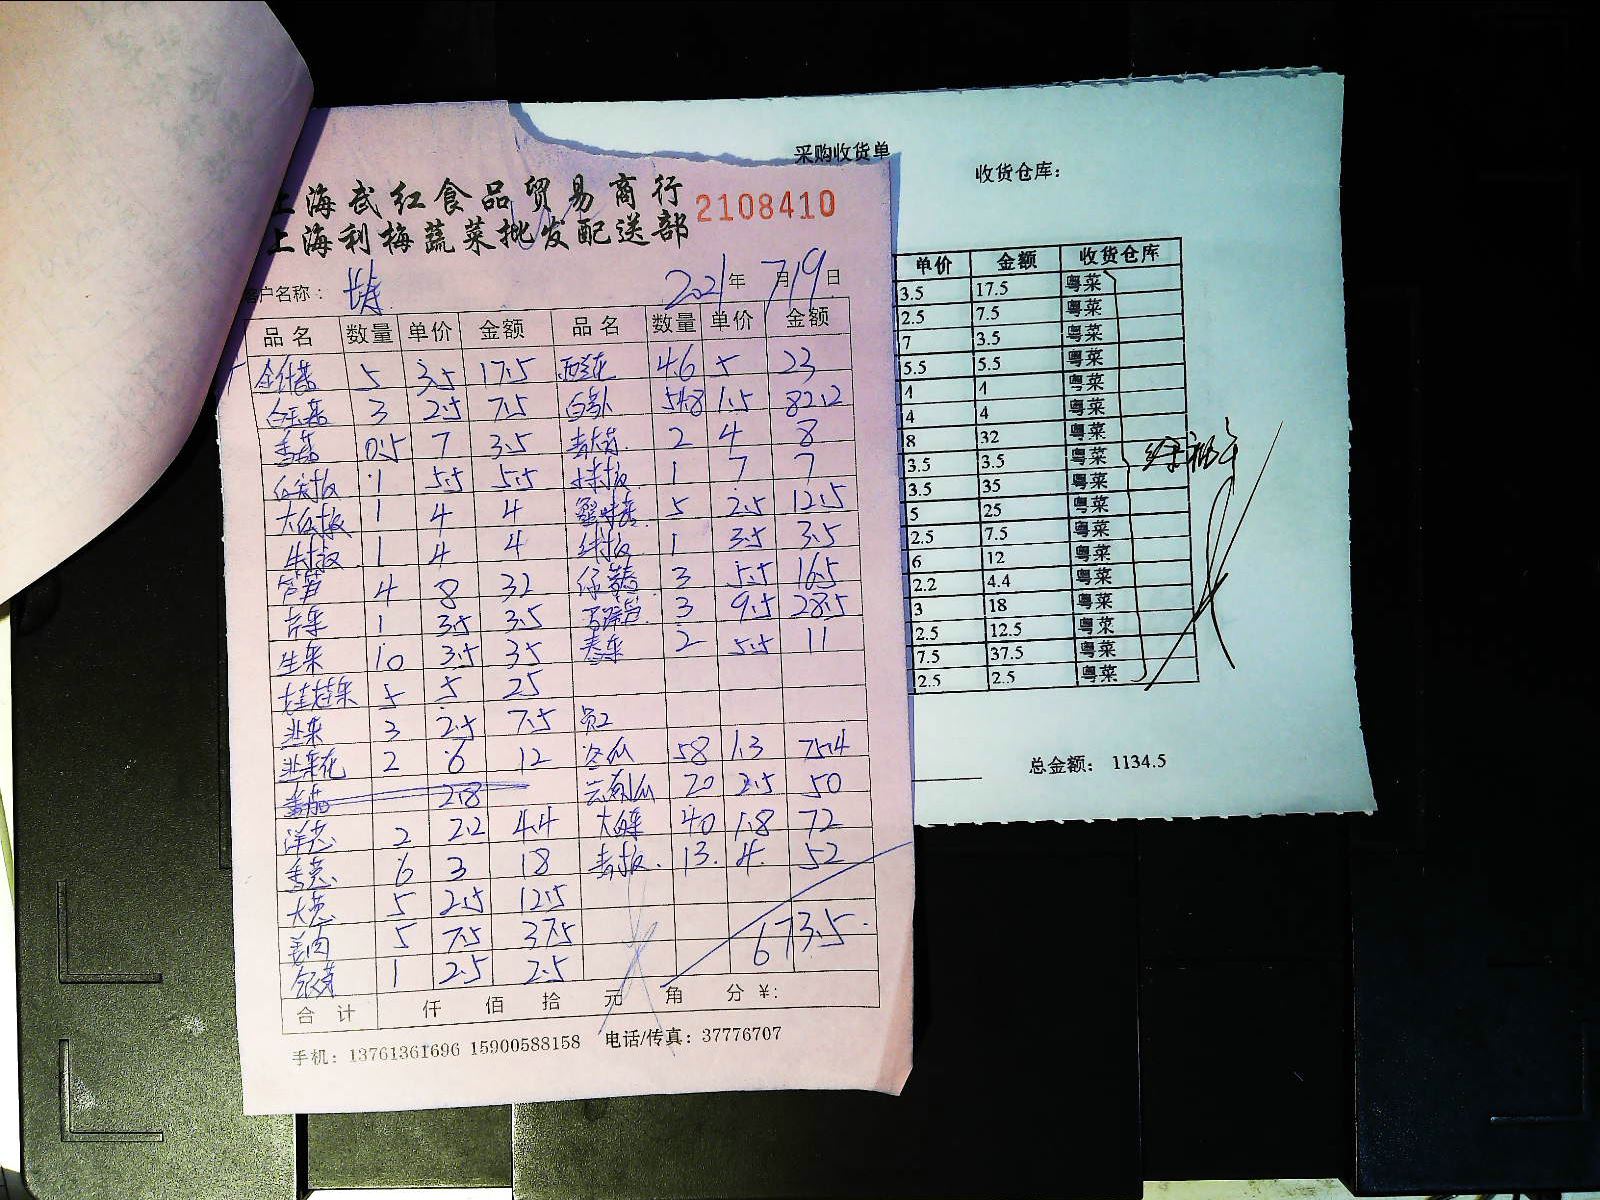 采购收货单
收货仓库：
上海武红食品贸易商行
2108410
上海利梅蔬菜批发配送部
客户名称：
2021年 7月19日
品名 数量 单价 金额 品名 数量 单价 金额
金针菇 5 3.5 17.5 西兰花 4.6 5 23
白玉菇 3 2.5 7.5 白萝卜 54.8 1.5 82.2
香菇 0.5 7 3.5 2 4 8
红尖椒 1 5.5 5.5 小米椒 1 7 7
大红椒 1 4 4 蟹味菇 5 2.5 12.5
牛角椒 1 4 4 红椒 1 3.5 3.5
芦笋 4 8 32 3 5.5 16.5
芹菜 1 3.5 3.5 3 9.5 28.5
生菜 10 3.5 35 2 5.5 11
娃娃菜 5 5 25
韭菜 3 2.5 7.5 员工
韭菜花 2 6 12 冬瓜 58 1.3 75.4
番茄 2.8 云南瓜 20 2.5 50
洋葱 2 2.2 4.4 大白菜 40 1.8 72
香葱 6 3 18 青椒 13 4 52
大葱 5 2.5 12.5
姜肉 5 7.5 37.5 673.5
银芽 1 2.5 2.5
合计 仟 佰 拾 元 角 分 ¥:
手机：13761361696 15900588158 电话/传真：37776707
单价 金额 收货仓库
3.5 17.5 粤菜
2.5 7.5 粤菜
7 3.5 粤菜
5.5 5.5 粤菜
4 4 粤菜
4 4 粤菜
8 32 粤菜
3.5 3.5 粤菜
3.5 35 粤菜
5 25 粤菜
2.5 7.5 粤菜
6 12 粤菜
2.2 4.4 粤菜
3 18 粤菜
2.5 12.5 粤菜
7.5 37.5 粤菜
2.5 2.5 粤菜
总金额： 1134.5